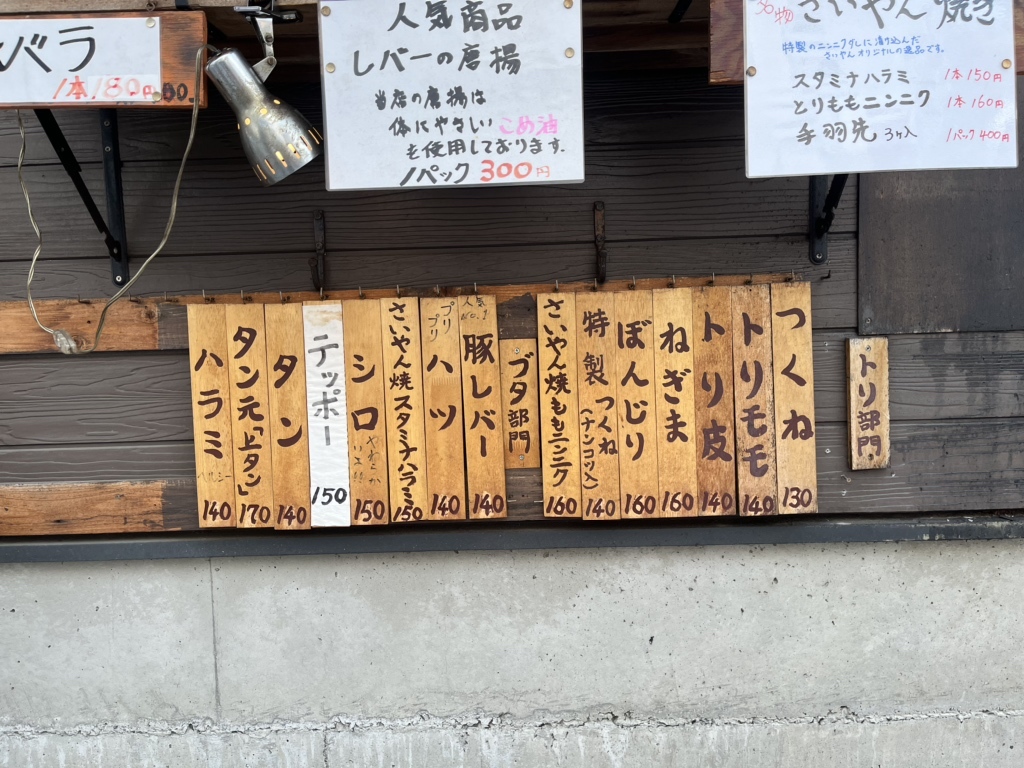 バラ
1本180円
人気商品
レバーの唐揚
当店の唐揚は
体にやさしいこめ油
を使用しております。
1パック300円
さいやん焼き
特製のニンニクダレに漬け込んだ
さいやんオリジナルの逸品です。
スタミナハラミ 1本150円
とりももニンニク 1本160円
手羽先 3ヶ入 1パック400円
トリ部門
つくね 130
トリモモ 140
トリ皮 140
ねぎま 160
ぼんじり 160
特製つくね(ナンコツ入) 140
さいやん焼ももニンニク 160
ブタ部門
人気No.1 豚レバー 140
プリプリ ハツ 140
さいやん焼スタミナハラミ 150
シロ 150
テッポー 150
タン 140
タン元「上タン」 170
ハラミ 140